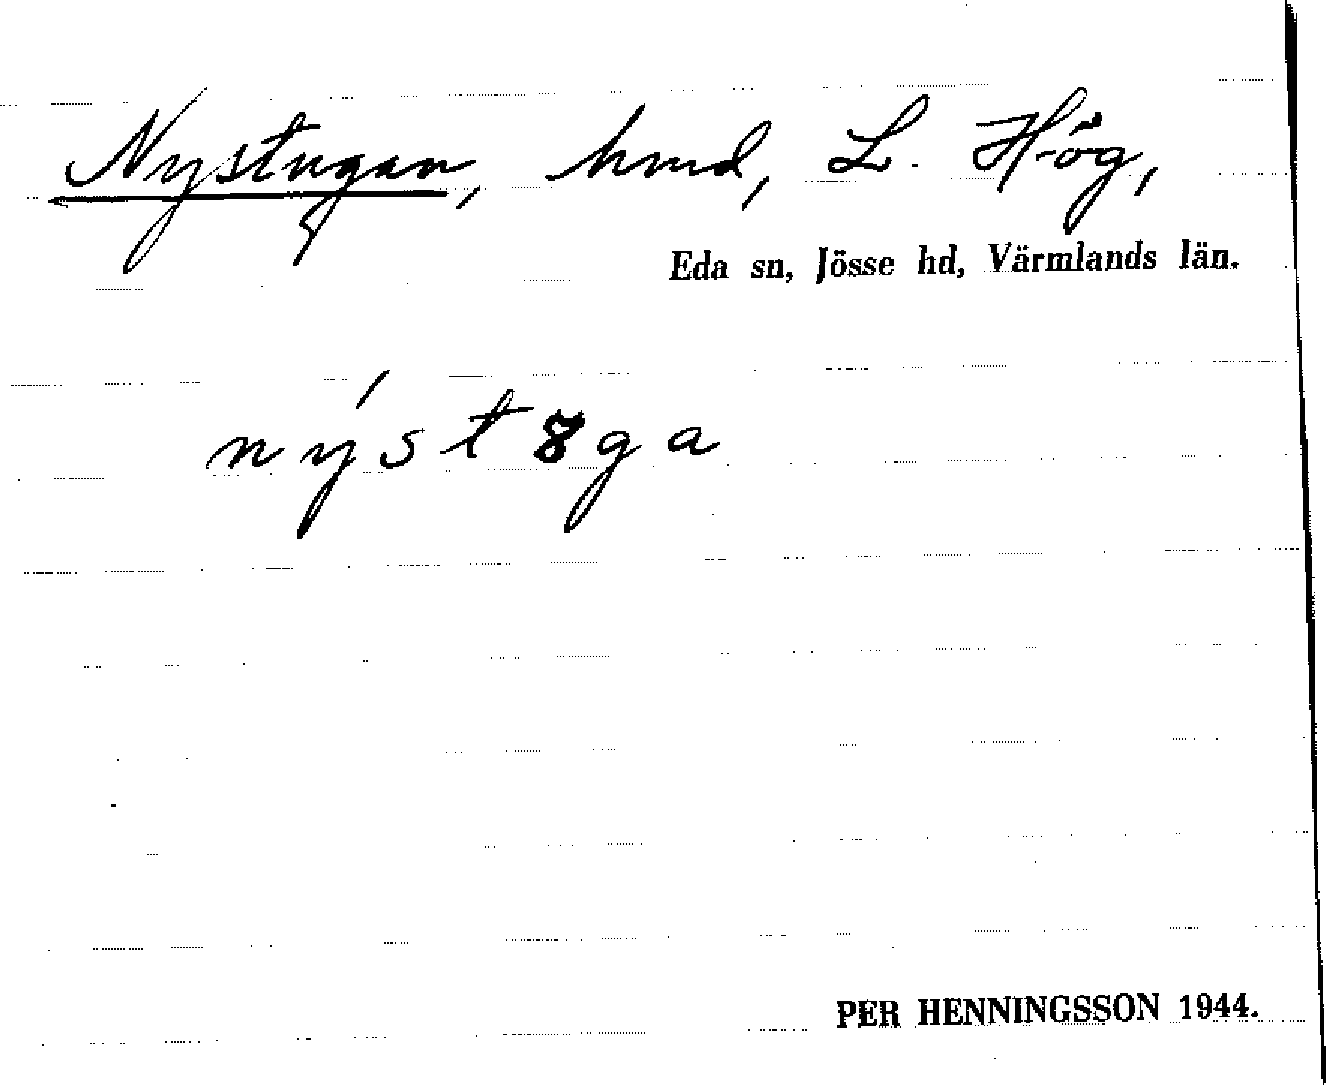 Nystugan, hmd, L. Hög,
Eda sn, Jösse hd, Värmlands län.
nýst8ga
PER HENNINGSSON 1944.